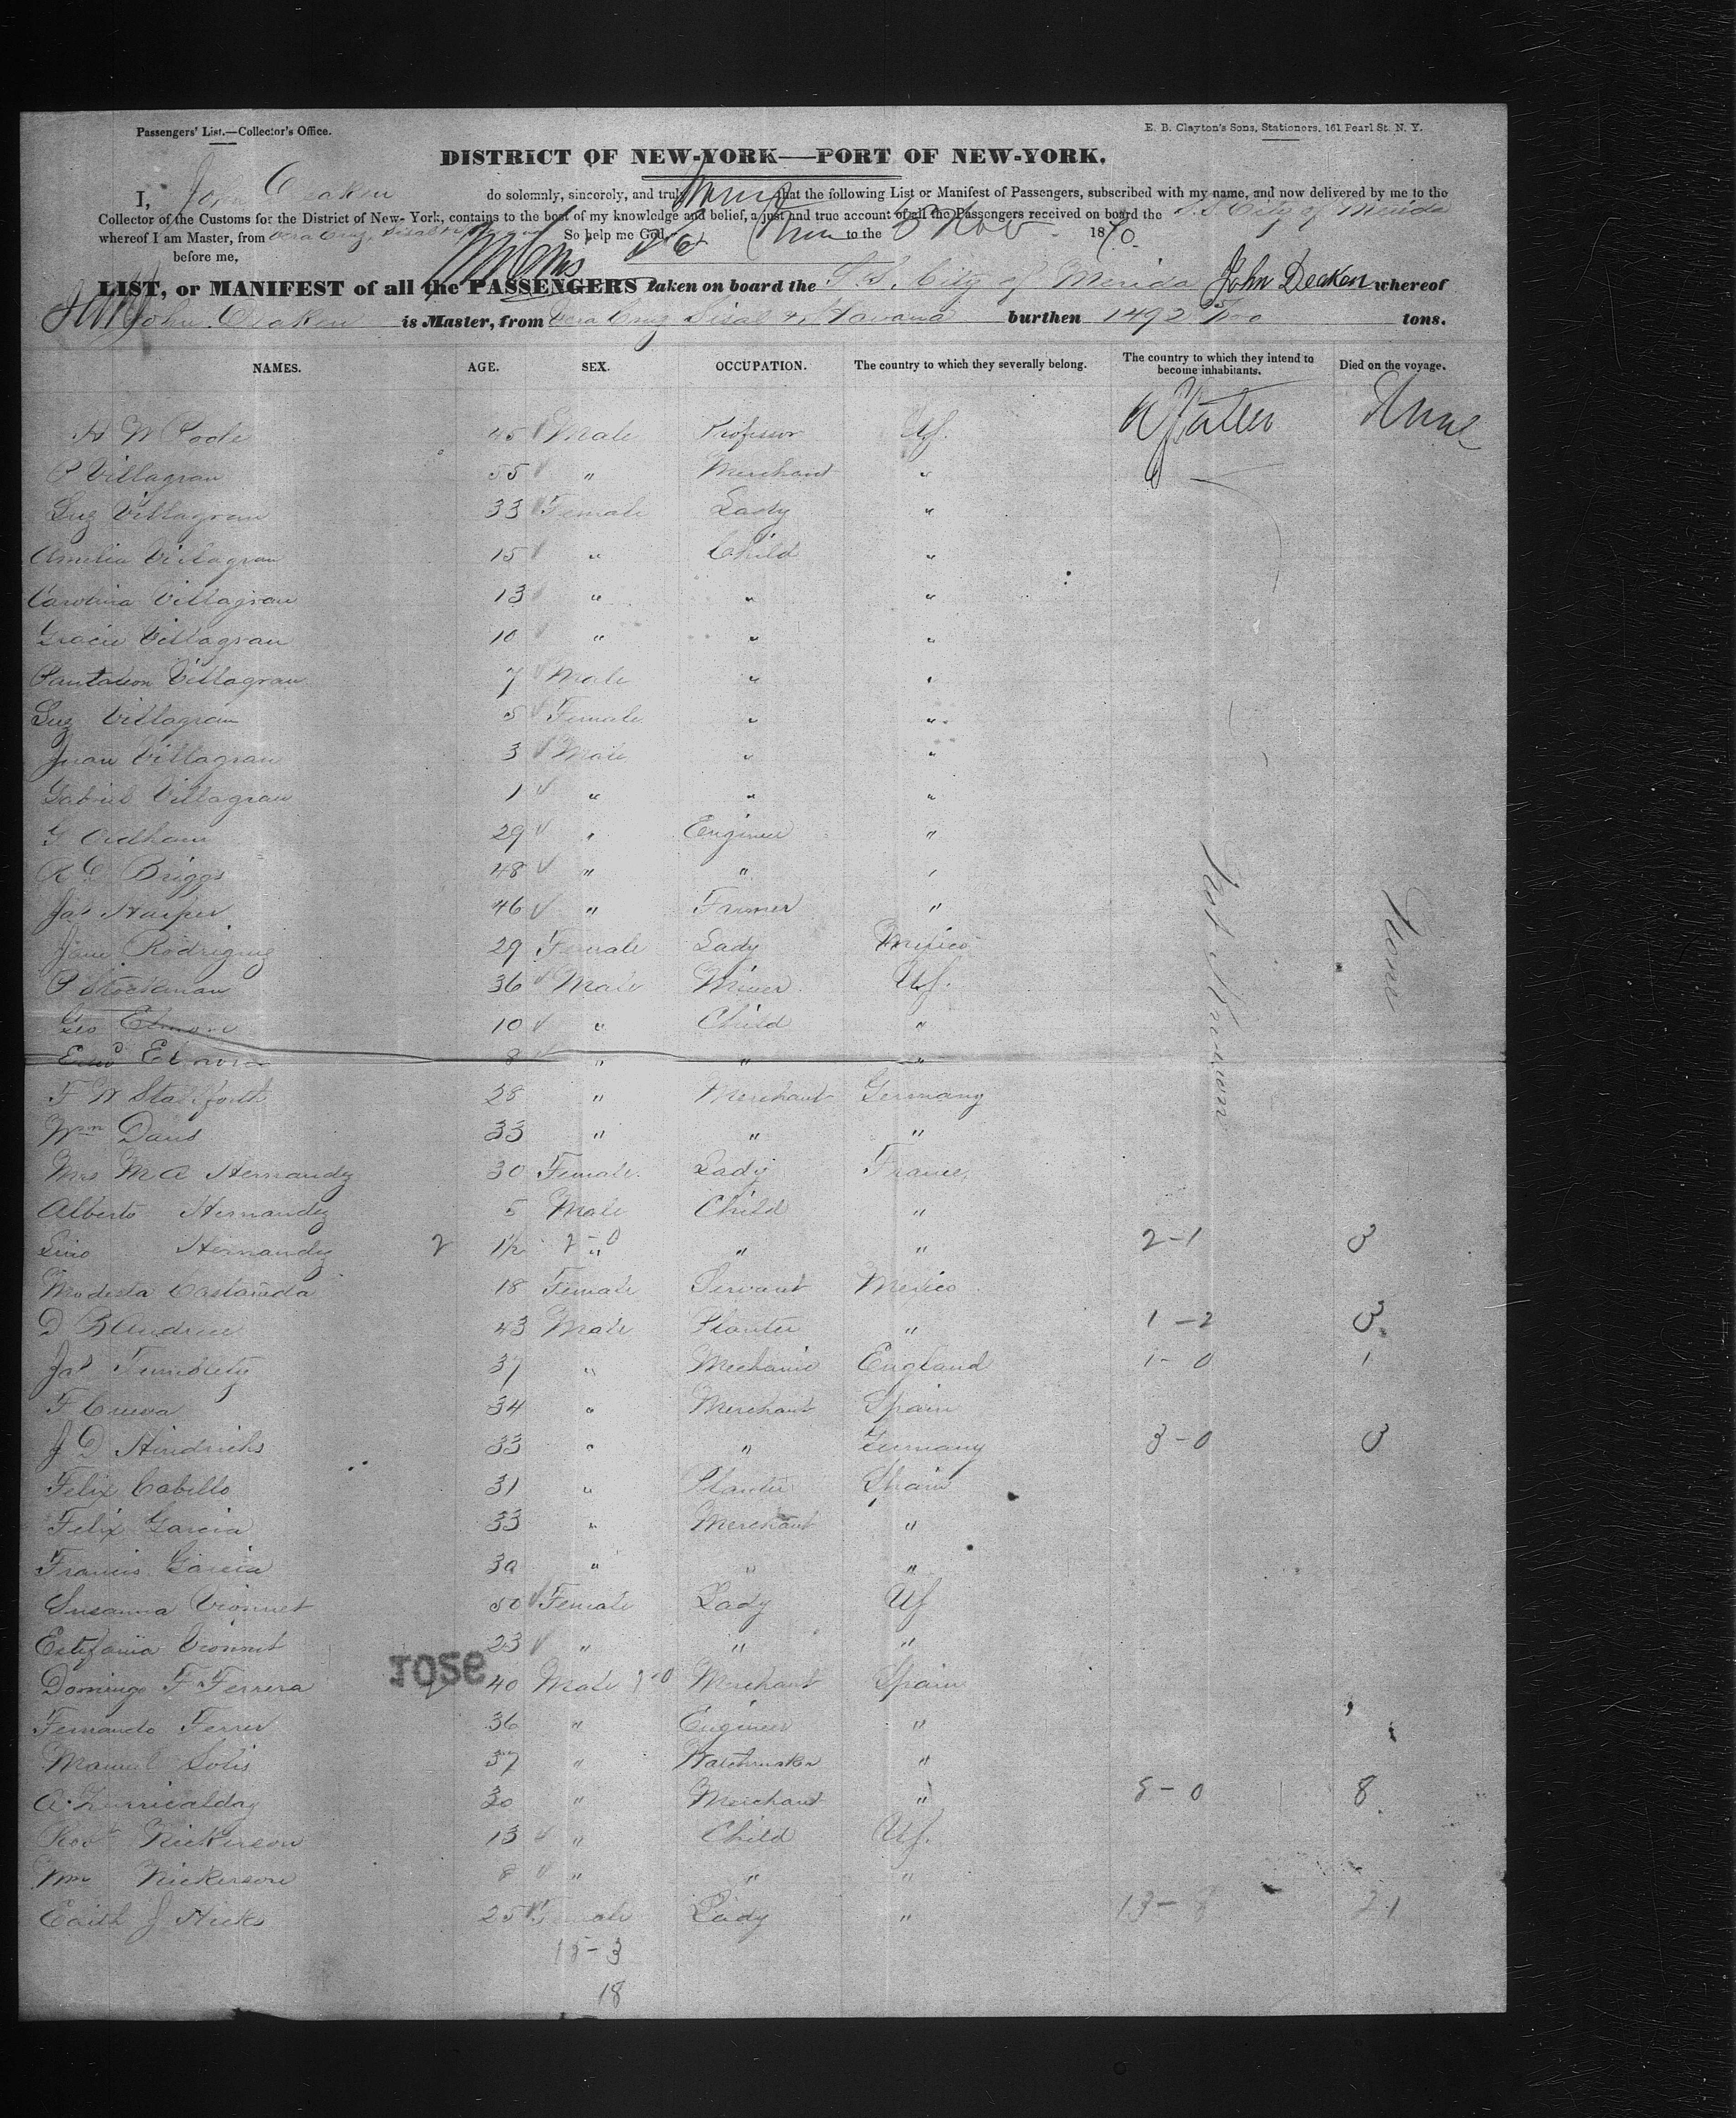 Passengers' List.—Collector's Office.
E. B. Clayton's Sons, Stationers, 161 Pearl St. N. Y.
DISTRICT OF NEW-YORK—PORT OF NEW-YORK.
I, John Deaken do solemnly, sincerely, and truly that the following List or Manifest of Passengers, subscribed with my name, and now delivered by me to the
Collector of the Customs for the District of New-York, contains to the best of my knowledge and belief, a just and true account of all the Passengers received on board the S.S. City of Merida
whereof I am Master, from Vera Cruz, Sisal & Havana So help me God. to the 6 Nov 1870.
before me,
LIST, or MANIFEST of all the PASSENGERS taken on board the S.S. City of Merida John Deaken whereof
John Deaken is Master, from Vera Cruz Sisal & Havana burthen 1492 tons.
NAMES. AGE. SEX. OCCUPATION. The country to which they severally belong. The country to which they intend to become inhabitants. Died on the voyage.
H W Poole 45 Male Professor US.
P Villagran 55 " Merchant "
Luz Villagran 33 Female Lady "
Amelia Villagran 15 " Child "
Carolina Villagran 13 " " "
Gracie Villagran 10 " " "
Pantaleon Villagran 7 Male " "
Luz Villagran 5 Female " "
Juan Villagran 3 Male " "
Gabriel Villagran 1 " " "
G Oldham 29 " Engineer "
R C Briggs 48 " " "
Jas Harper 46 " Farmer "
Jane Rodriguez 29 Female Lady Mexico
P Stockman 36 Male Miner US.
Geo 10 " Child "
8 " " "
F W Stallforth 28 " Merchant Germany
Wm Davis 33 " " "
Mrs M A Hernandez 30 Female Lady France
Alberto Hernandez 5 Male Child "
Hernandez 2 1½ 2-0 " " " 2-1 3
Modesta Castañeda 18 Female Servant Mexico
D 43 Male Planter " 1-2 3
Jas 37 " Mechanic England 1-0 1
F Cueva 34 " Merchant Spain
J D Hindrichs 33 " " Germany 3-0 3
Felix Cabello 31 " Planter Spain
Felix Garcia 33 " Merchant "
Francis Garcia " " "
Susanna Vionnet 50 Female Lady US
Estefania Vionnet 23 " " "
Domingo F Ferrera Jose 40 Male Merchant Spain
Fernando Ferrer 36 " Engineer "
Manuel Solis 37 " Watchmaker "
A 30 " Merchant " 8-0 8
Nickerson 13 " Child US.
Wm Nickerson 8 " " "
Edith J Hicks 25 Female Lady " 13- 21
15-3
18
None